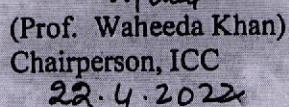 (Prof. Waheeda Khan)
Chairperson, ICC
22.4.2022